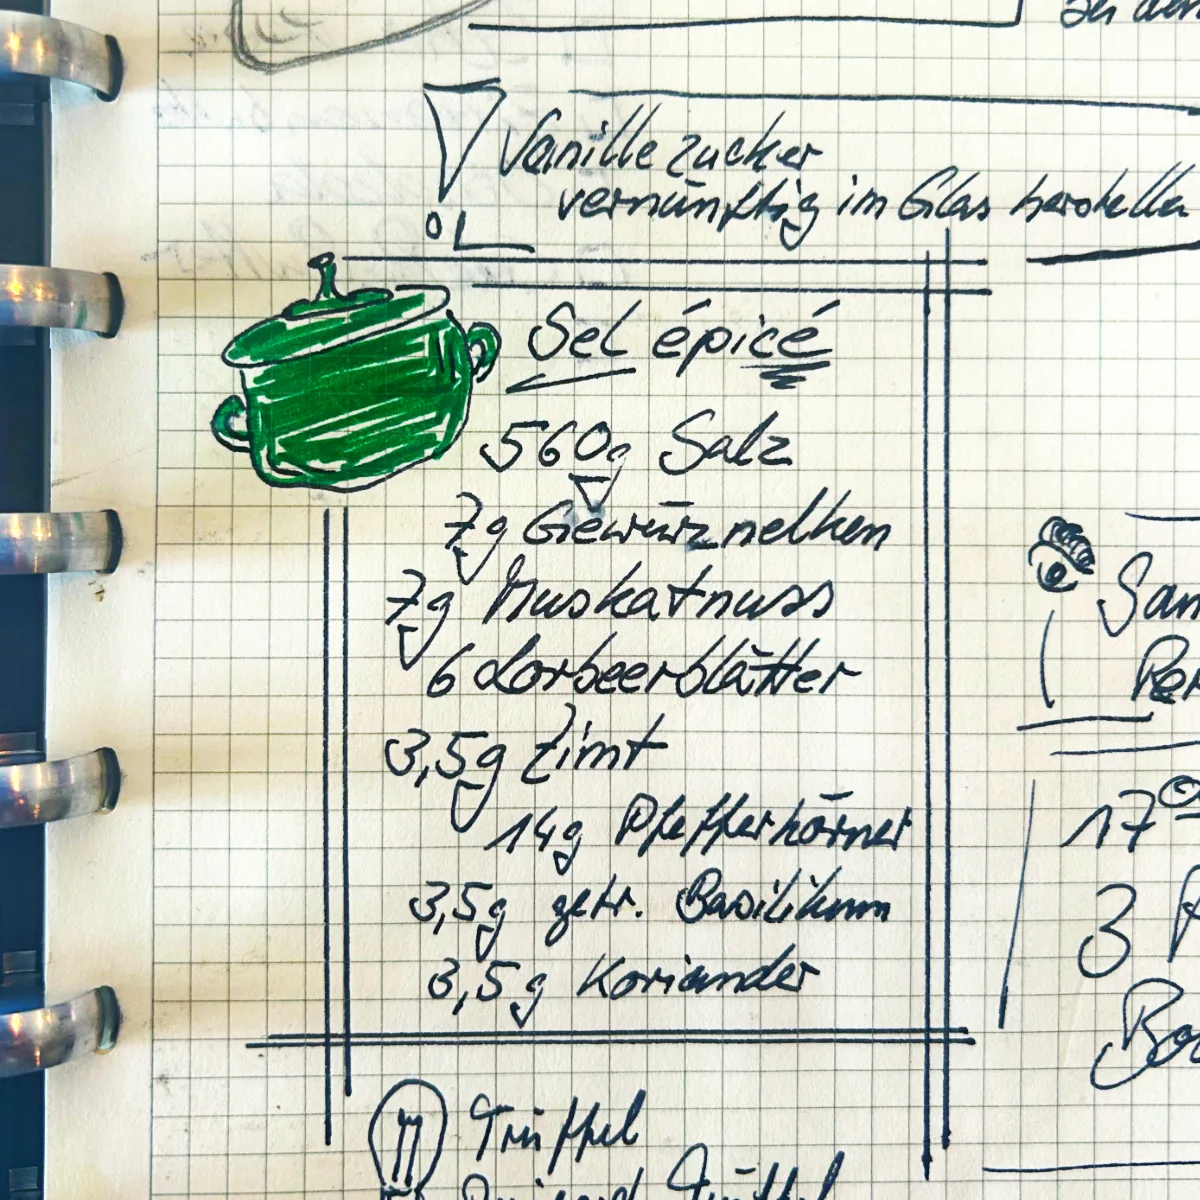 zu den
Vanillezucker
vernünftig im Glas herstellen
Sel épicé
560g Salz
7g Gewürznelken
7g Muskatnuss
6 Lorbeerblätter
3,5g Zimt
14g Pfefferkörner
3,5g getr. Basilikum
3,5g Koriander
17
3
Trüffel
Trüffel